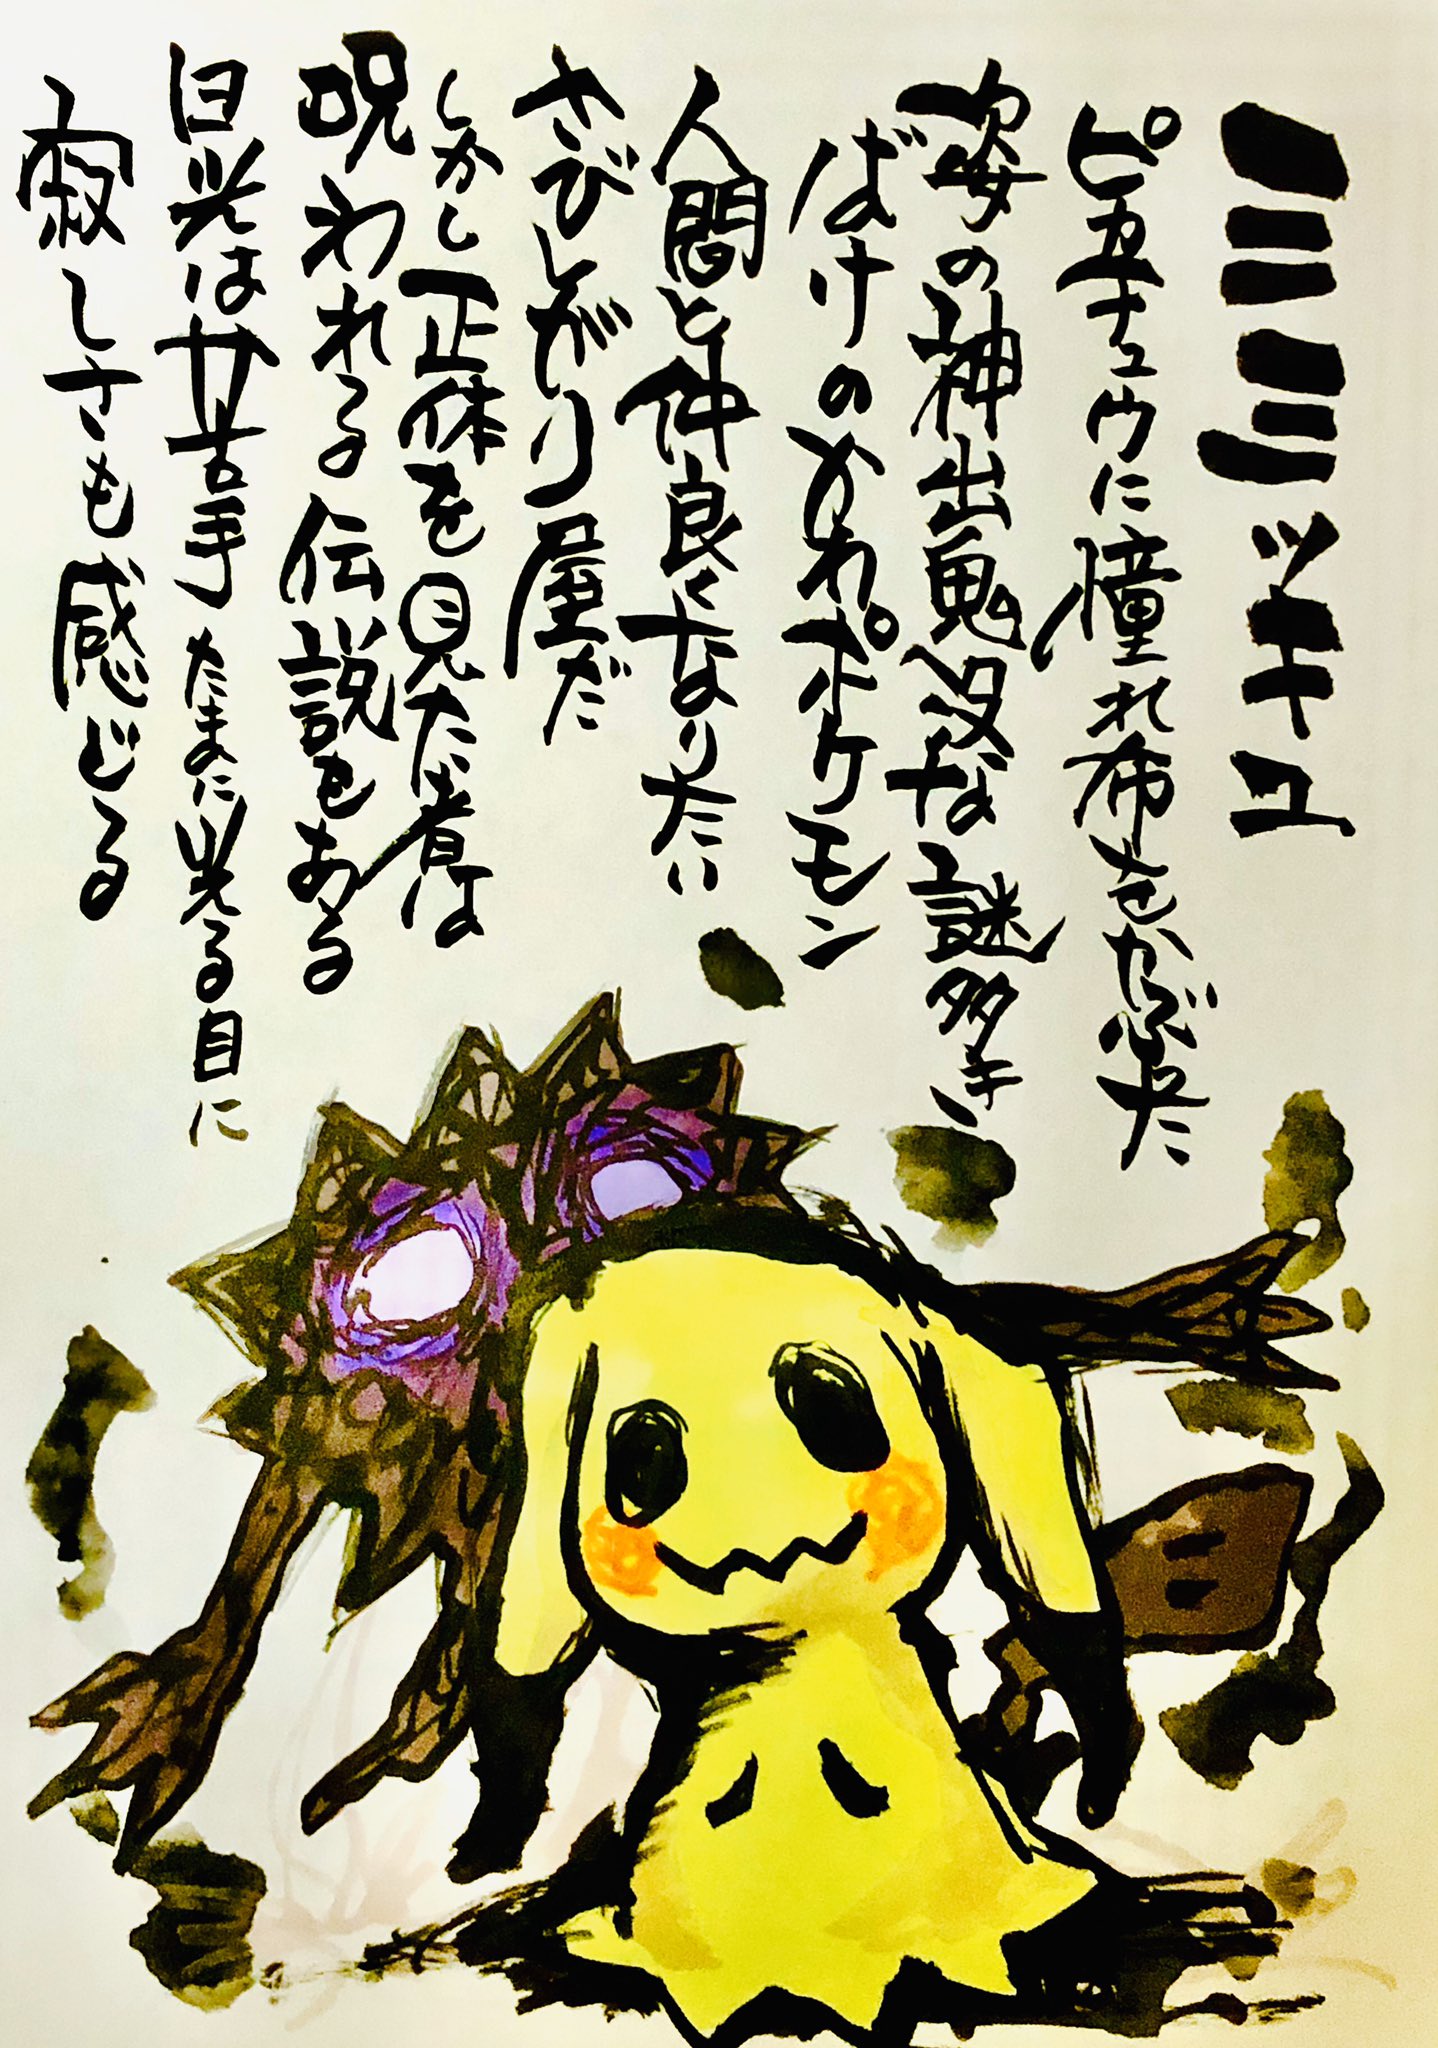 ミミッキュ
ピカチュウに憧れ布をかぶった
姿の神出鬼没な謎多き、
ばけのかわポケモン
人間と仲良くなりたい
さびしがり屋だ
しかし正体を見た者は
呪われる伝説もある
日光は苦手たまに光る目に
寂しさも感じる